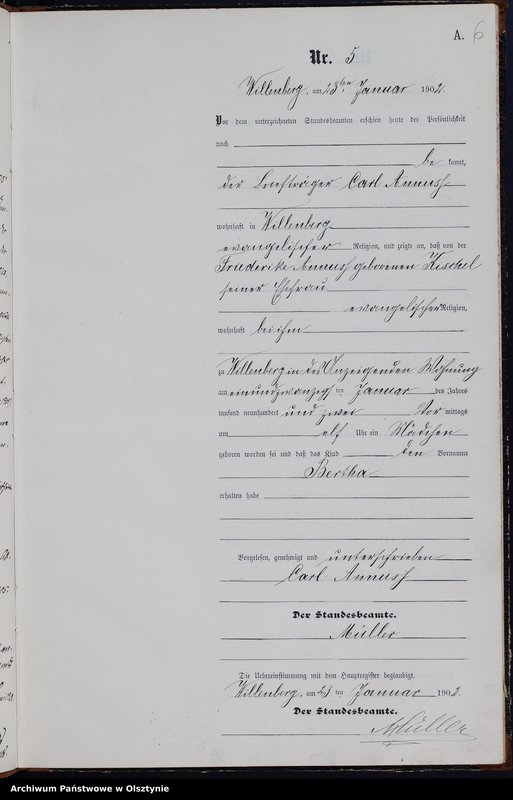 A. 6
Nr. 5
Willenberg, am 23ten Januar 1902.
Vor dem unterzeichneten Standesbeamten erschien heute der Persönlichkeit
nach
be kannt,
der Briefträger Carl Annush
wohnhaft in Willenberg
evangelischer Religion, und zeigte an, daß von der
Friederike Annush geborenen Kischel
seiner Ehefrau
evangelischer Religion,
wohnhaft bei ihm
zu Willenberg in des Anzeigenden Wohnung
am einundzwanzigsten Januar des Jahres
tausend neunhundert und zwei Vor mittags
um elf Uhr ein Mädchen
geboren worden sei und daß das Kind den Vornamen
Bertha
erhalten habe
Vorgelesen, genehmigt und unterschrieben
Carl Annush
Der Standesbeamte.
Müller
Die Uebereinstimmung mit dem Hauptregister beglaubigt.
Willenberg, am ten Januar 1902.
Der Standesbeamte.
Müller
Archiwum Państwowe w Olsztynie